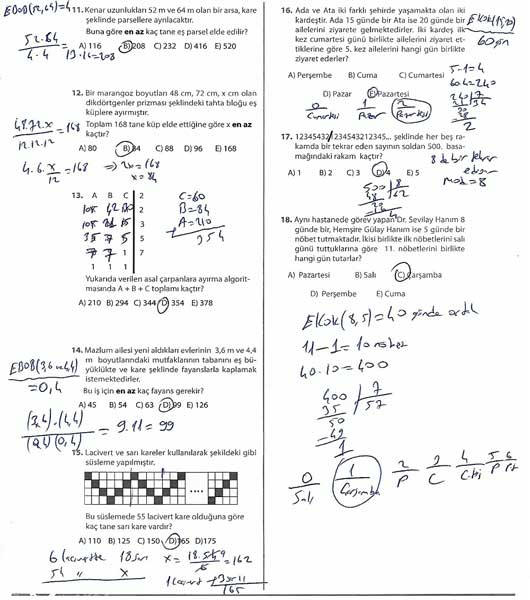 EBOB(52,64)=4
11. Kenar uzunlukları 52 m ve 64 m olan bir arsa, kare
şeklinde parsellere ayrılacaktır.
Buna göre en az kaç tane eş parsel elde edilir?
52.64
4.4
= 13.16=208
A) 116 B) 208 C) 232 D) 416 E) 520
12. Bir marangoz boyutları 48 cm, 72 cm, x cm olan
dikdörtgenler prizması şeklindeki tahta bloğu eş
küplere ayırmıştır.
Toplam 168 tane küp elde ettiğine göre x en az
kaçtır?
48.72.x
12.12.12
=168
A) 80 B) 84 C) 88 D) 96 E) 108
4.6.x/12=168 => 2x=168
x=84
13. A B C 2
105 42 30 2
105 21 15 3
35 7 5 5
7 7 1 7
1 1 1
C=60
B=84
A=210
+
354
Yukarıda verilen asal çarpanlara ayırma algorit-
masında A + B + C toplamı kaçtır?
A) 210 B) 294 C) 344 D) 354 E) 378
14. Mazlum ailesi yeni aldıkları evlerinin 3,6 m ve 4,4
m boyutlarındaki mutfaklarının tabanını eş bü-
yüklükte ve kare şeklinde fayanslarla kaplamak
istemektedirler.
Bu iş için en az kaç fayans gerekir?
EBOB(3,6 ve 4,4)
=0,4
A) 45 B) 54 C) 63 D) 99 E) 126
(3,6).(4,4)
(0,4)(0,4)
= 9.11=99
15. Lacivert ve sarı kareler kullanılarak şekildeki gibi
süsleme yapılmıştır.
....
Bu süslemede 55 lacivert kare olduğuna göre
kaç tane sarı kare vardır?
A) 110 B) 125 C) 150 D) 165 D) 175
6 lacivertte 18 sarı
54 x
x = 18.54/6 = 162
1 lacivert + 3 sarı
165
16. Ada ve Ata iki farklı şehirde yaşamakta olan iki
kardeştir. Ada 15 günde bir Ata ise 20 günde bir
ailelerini ziyarete gelmektedirler. İki kardeş ilk
kez cumartesi günü birlikte ailelerini ziyaret et-
tiklerine göre 5. kez ailelerini hangi gün birlikte
ziyaret ederler?
EKOK(15,20)
60 gün
A) Perşembe B) Cuma C) Cumartesi
D) Pazar E) Pazartesi
5-1=4
60.4=240
240 7
21 34
30
28
2
0 1 2
Cumartesi Pazar Pazartesi
17. 123454321/234543212345... şeklinde her beş ra-
kamda bir tekrar eden sayının soldan 500. basa-
mağındaki rakam kaçtır?
8 de bir tekrar
eden
mod=8
A) 1 B) 2 C) 3 D) 4 E) 5
500 8
48 62
18. Aynı hastanede görev yapan Dr. Sevilay Hanım 8
günde bir, Hemşire Gülay Hanım ise 5 günde bir
nöbet tutmaktadır. İkisi birlikte ilk nöbetlerini salı
günü tuttuklarına göre 11. nöbetlerini birlikte
hangi gün tutarlar?
A) Pazartesi B) Salı C) Çarşamba
D) Perşembe E) Cuma
EKOK(8,5)=40 günde
11-1=10 nöbet
40.10=400
400 7
35 57
50
49
1
0 1 2 3 4 5 6
Salı Çarşamba P C C.tsi P Pt